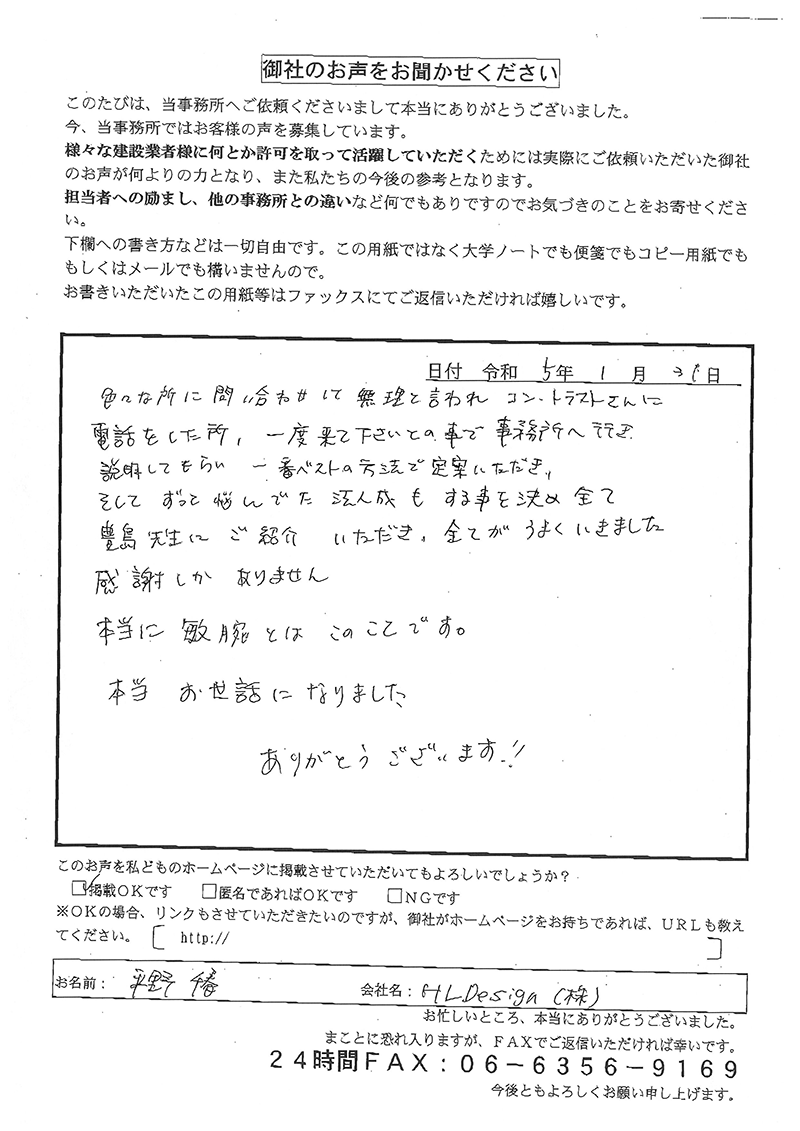 御社のお声をお聞かせください
このたびは、当事務所へご依頼くださいまして本当にありがとうございました。
今、当事務所ではお客様の声を募集しています。
様々な建設業者様に何とか許可を取って活躍していただくためには実際にご依頼いただいた御社
のお声が何よりの力となり、また私たちの今後の参考となります。
担当者への励まし、他の事務所との違いなど何でもありですのでお気づきのことをお寄せくださ
い。
下欄への書き方などは一切自由です。この用紙ではなく大学ノートでも便箋でもコピー用紙でも
もしくはメールでも構いませんので。
お書きいただいたこの用紙等はファックスにてご返信いただければ嬉しいです。
日付 令和 5年 1月 31日
色々な所に問い合わせして無理と言われ コントラストさんに
電話をした所、一度来て下さいとの事で事務所へ行き
説明してもらい 一番ベストの方法で定案いただき、
そして ずっと悩んでた 法人成も する事を決め 全て
豊島先生に ご紹介 いただき、全てが うまくいきました
感謝しか ありません
本当に 敏腕とは このことです。
本当 お世話になりました
ありがとう ございます!!
このお声を私どものホームページに掲載させていただいてもよろしいでしょうか？
☑掲載OKです □匿名であればOKです □NGです
※OKの場合、リンクもさせていただきたいのですが、御社がホームページをお持ちであれば、URLも教え
てください。 [ http:// ]
お名前： 平野 椿 会社名： HLDesign (株)
お忙しいところ、本当にありがとうございました。
まことに恐れ入りますが、FAXでご返信いただければ幸いです。
24時間FAX：06-6356-9169
今後ともよろしくお願い申し上げます。